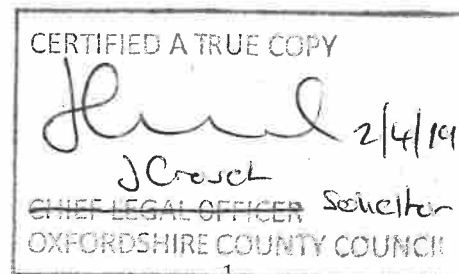 CERTIFIED A TRUE COPY
2/4/19
J Crouch
CHIEF LEGAL OFFICER Solicitor
OXFORDSHIRE COUNTY COUNCIL
1